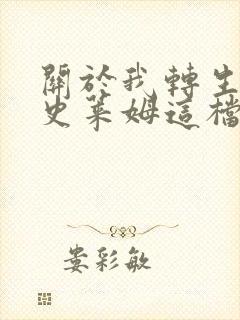 關於我轉生
史萊姆這檔
婁彩敏